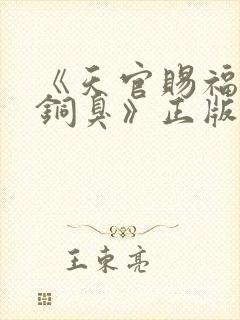 《天官赐福
铜臭》正版
王东亮